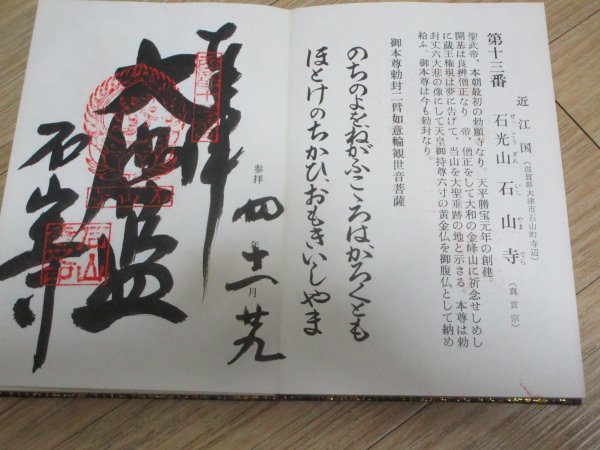 第十三番
近江国（滋賀県大津市石山町寺辺）
石光山 石山寺（真言宗）
せっこうざん いしやまでら
聖武帝、本朝最初の勅願寺なり。天平勝宝元年の創建。
開基は良辨僧正なり。帝、僧正をして大和の金峰山に祈念せしめし
に蔵王権現は夢に告げて、当山を大聖垂跡の地と示さる。本尊は勅
封丈六大悲の像にして天皇御持尊六寸の黄金仏を御腹仏として納め
給ふ。御本尊は今も勅封なり。
御本尊勅封二臂如意輪観世音菩薩
のちのよをねがふこゝろはかろくとも
ほとけのちかひ、おもきいしやま
参拝 四年十一月廿九
奉拝
大悲殿
石山寺